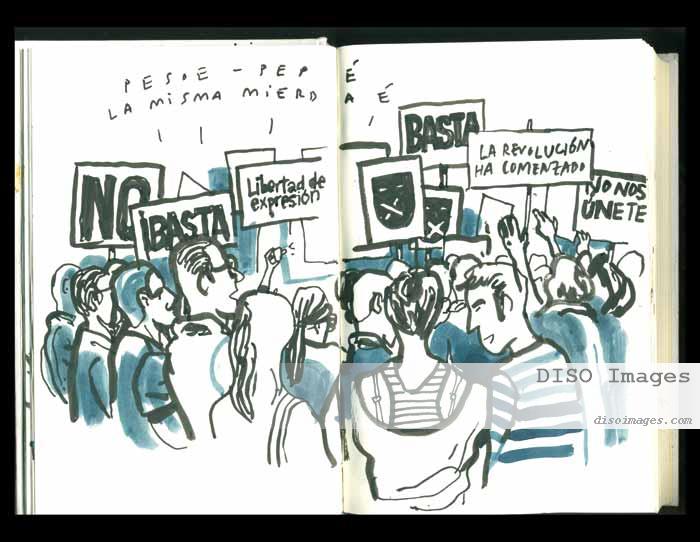 PESOE - PEP É
LA MISMA MIERD A É
NO
¡BASTA
Libertad de
expresión
BASTA
LA REVOLUCIÓN
HA COMENZADO
NO NOS
ÚNETE
DISO Images
disoimages.com